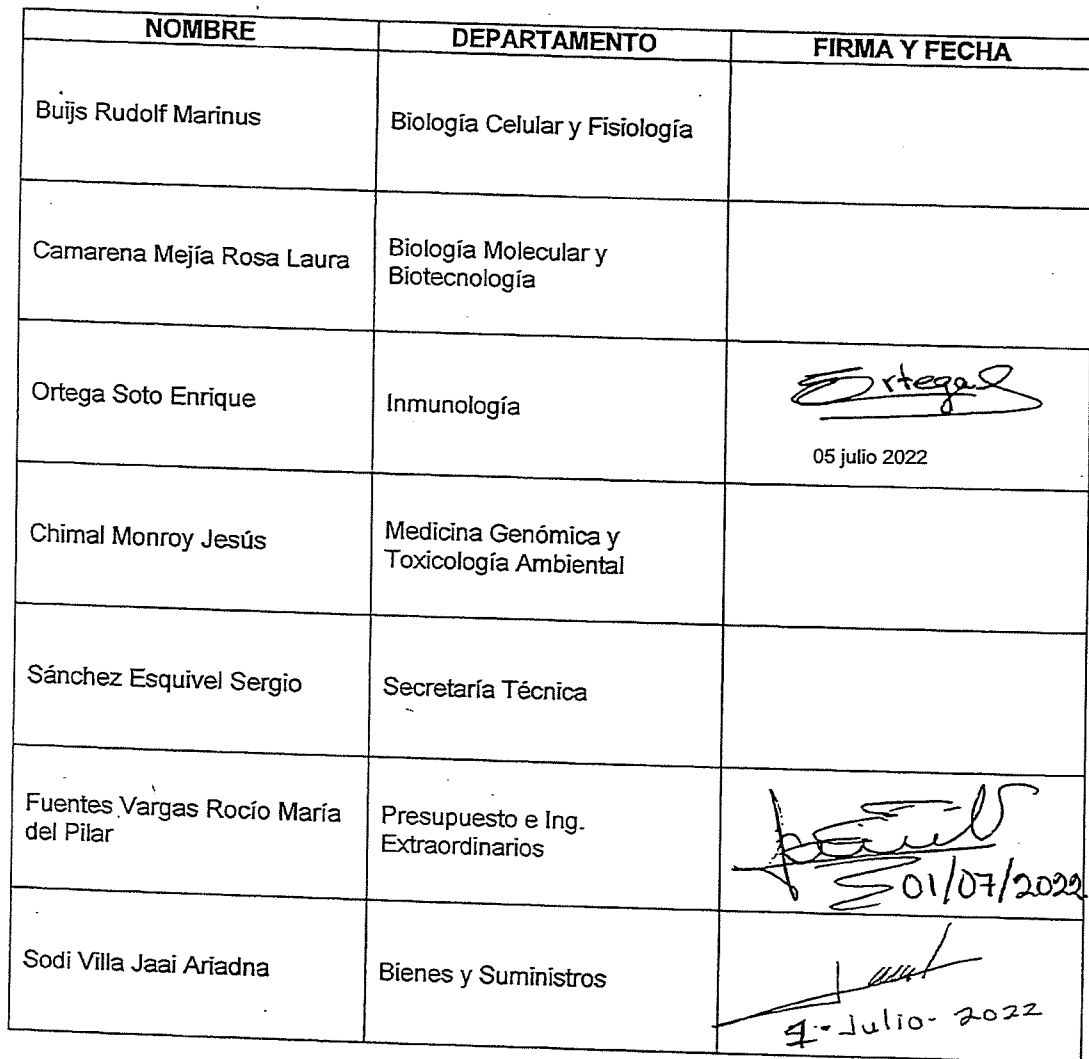 NOMBRE DEPARTAMENTO FIRMA Y FECHA
Buijs Rudolf Marinus Biología Celular y Fisiología
Camarena Mejía Rosa Laura Biología Molecular y
Biotecnología
Ortega Soto Enrique Inmunología
Ortega
05 julio 2022
Chimal Monroy Jesús Medicina Genómica y
Toxicología Ambiental
Sánchez Esquivel Sergio Secretaría Técnica
Fuentes Vargas Rocío María
del Pilar
Presupuesto e Ing.
Extraordinarios
01/07/2022
Sodi Villa Jaai Ariadna Bienes y Suministros
Julio- 2022